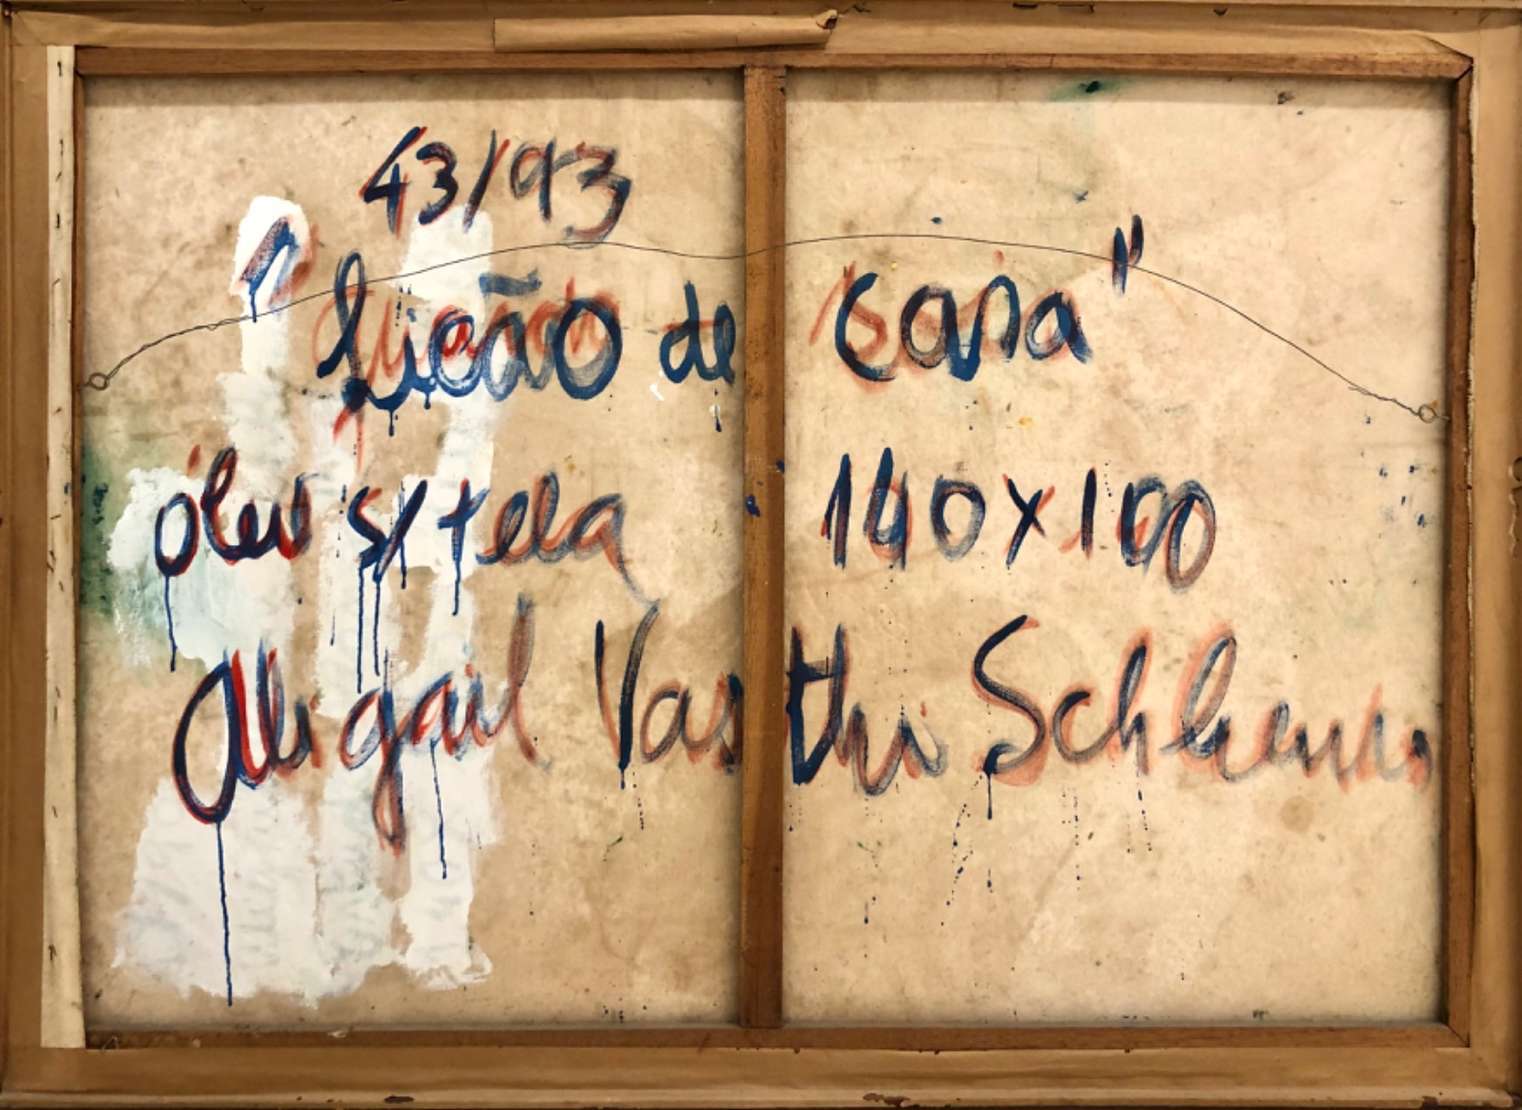 43/93
"Lição de casa"
óleo s/tela 140x100
Abigail Vasthi Schlemm